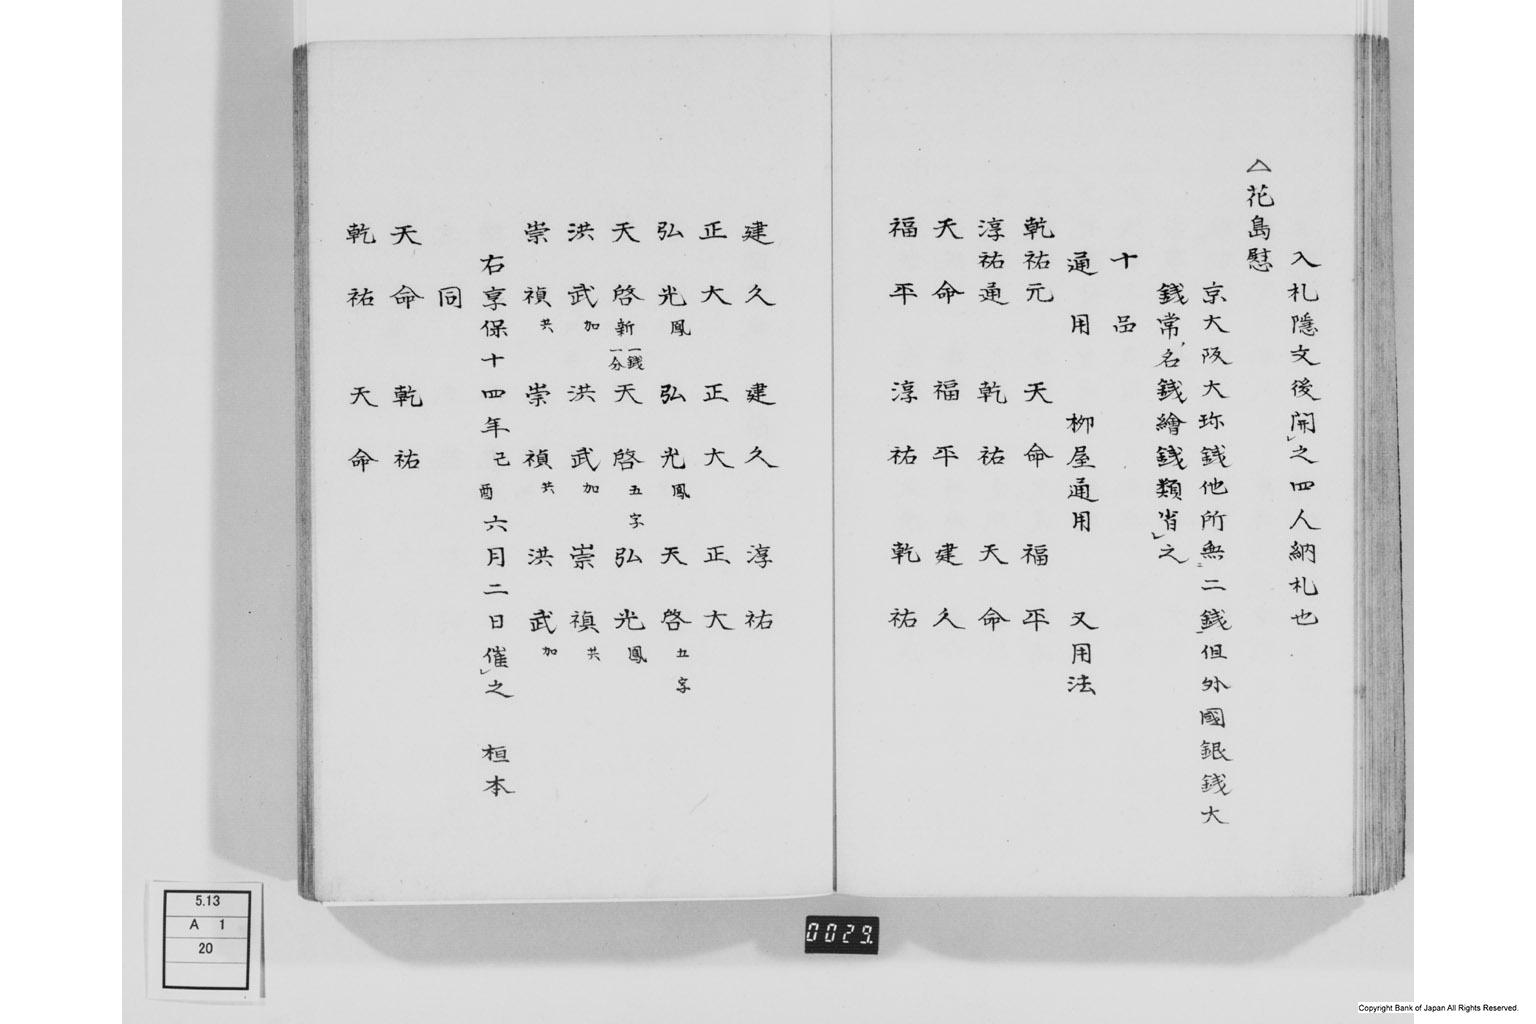 入札隠文後開レ之四人納札也
△花島慰
京大阪大珎銭他所無二銭一但外國銀銭大
銭常名銭繪銭類省レ之
十品
通用 柳屋通用 又用法
乾祐元 天命 福平
淳祐通 乾祐 天命
天命 福平 建久
福平 淳祐 乾祐
建久 建久 淳祐
正大 正大 正大
弘光鳳 弘光鳳 天啓五字
天啓新一銭一分 天啓五字 弘光鳳
洪武加 洪武加 崇禎共
崇禎共 崇禎共 洪武加
右享保十四年己酉六月二日催レ之 桓本
同
天命 乾祐
乾祐 天命
5.13
A 1
20
0029.
Copyright Bank of Japan All Rights Reserved.